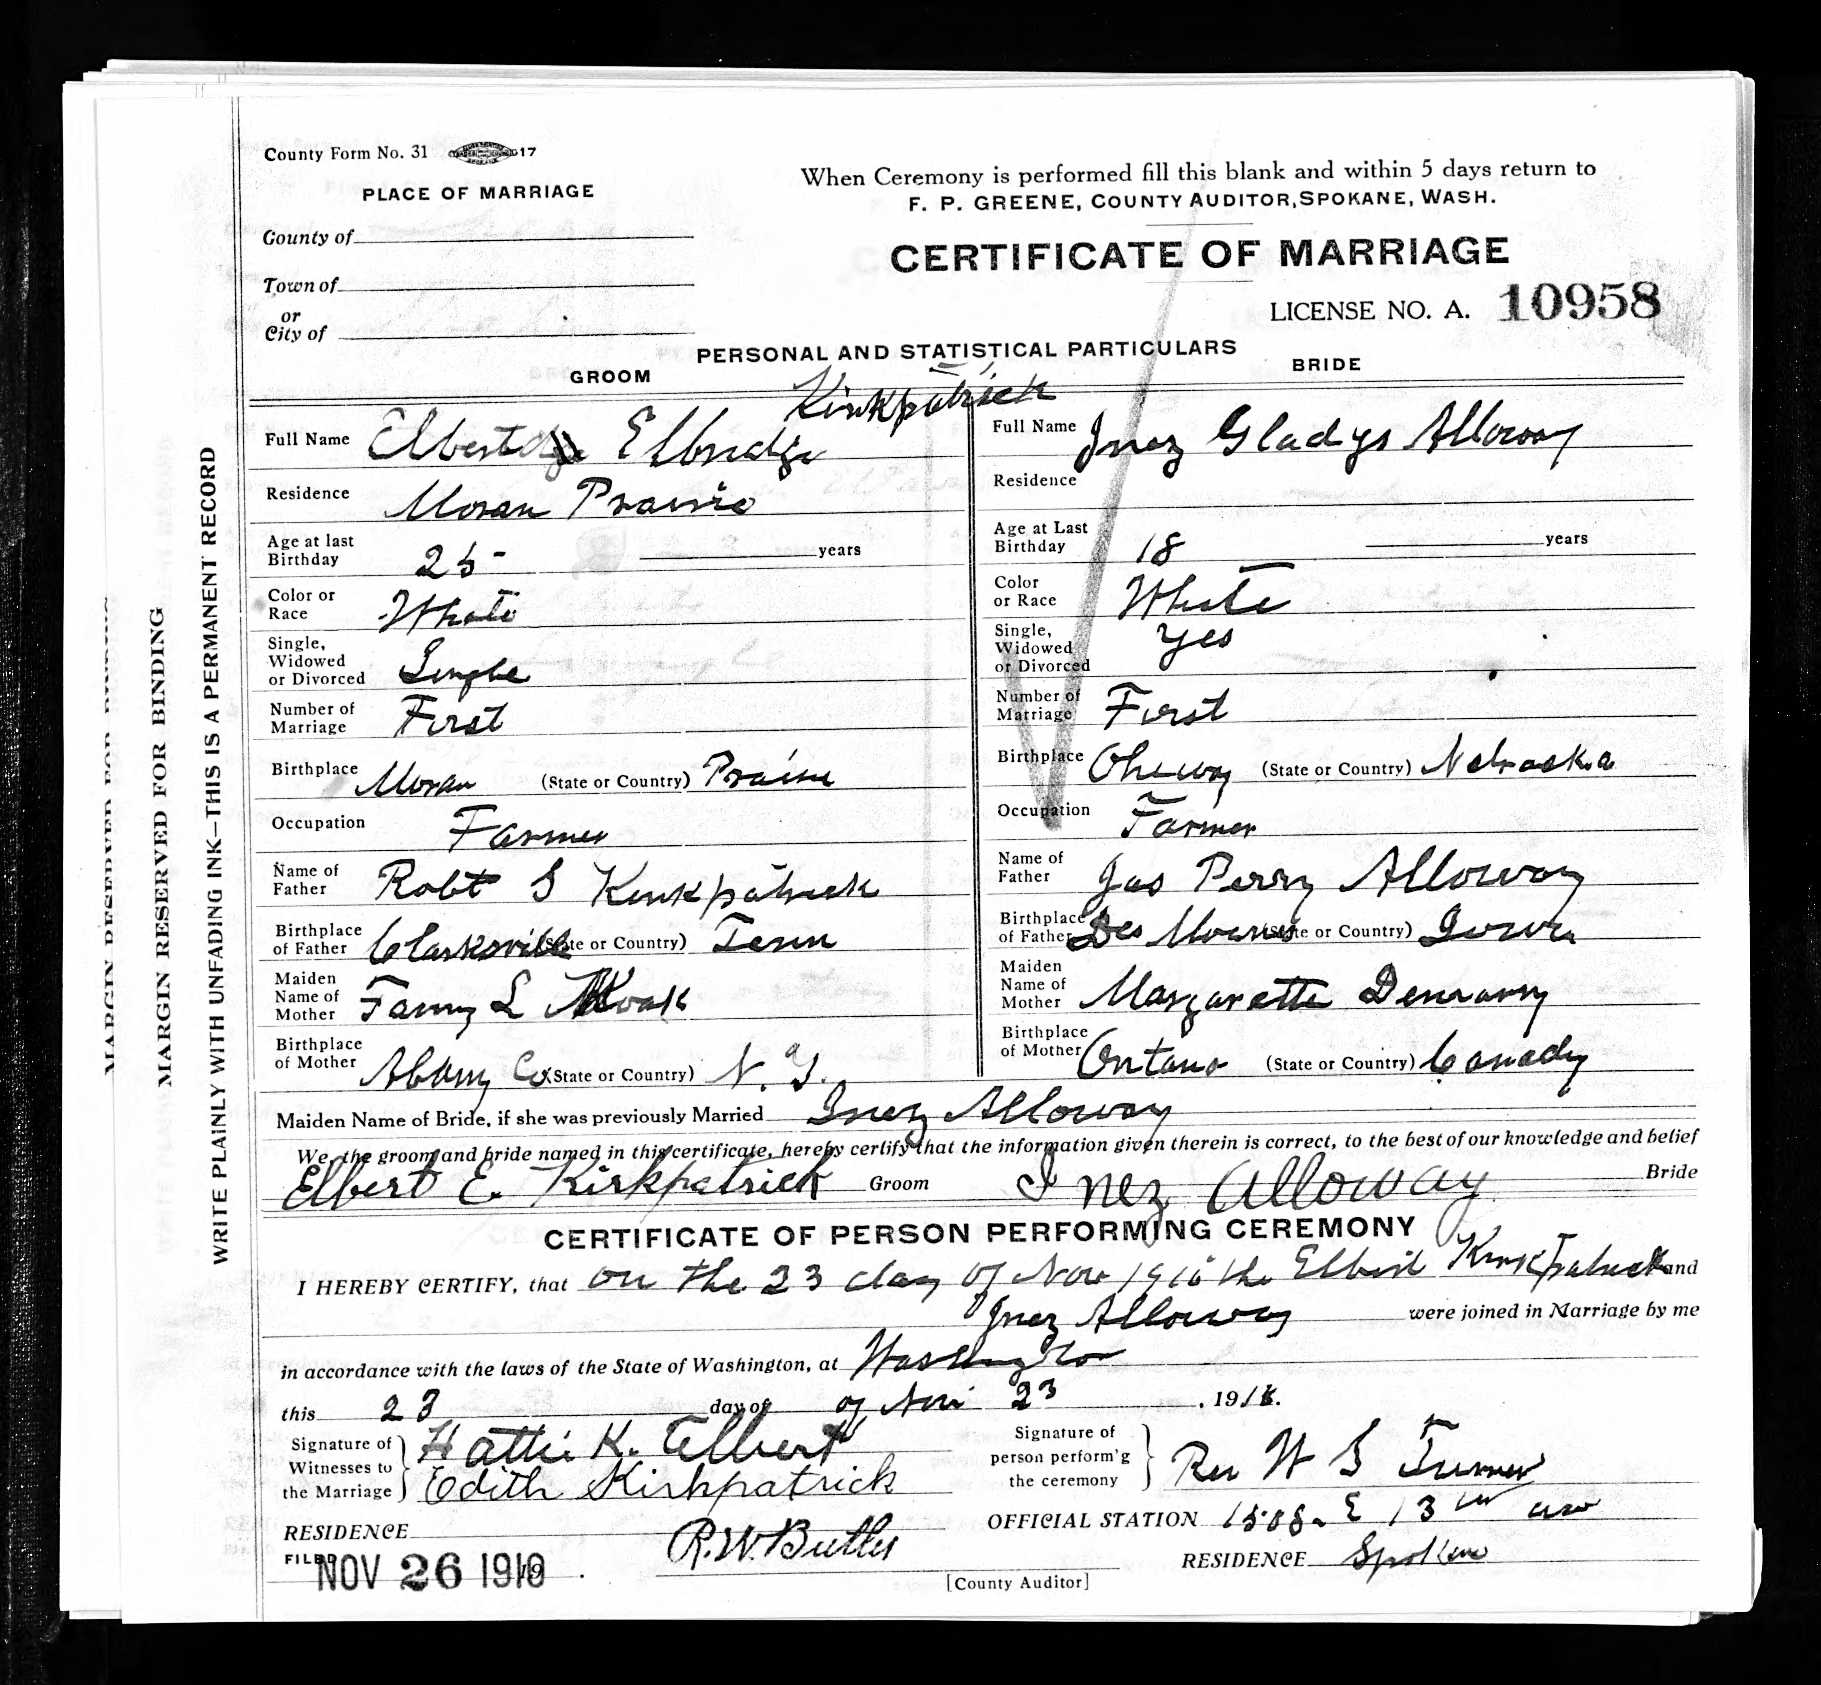 County Form No. 31 17
PLACE OF MARRIAGE
When Ceremony is performed fill this blank and within 5 days return to
F. P. GREENE, COUNTY AUDITOR, SPOKANE, WASH.
County of
CERTIFICATE OF MARRIAGE
Town of
or
City of
LICENSE NO. A. 10958
PERSONAL AND STATISTICAL PARTICULARS
GROOM BRIDE
Kirkpatrick
Full Name Elbert Elbridge Full Name Inez Gladys Alloway
Residence Moran Prairie Residence
Age at last Birthday 25 years Age at Last Birthday 18 years
Color or Race White Color or Race White
Single, Widowed or Divorced Single Single, Widowed or Divorced Yes
Number of Marriage First Number of Marriage First
Birthplace Moran (State or Country) Prairie Birthplace (State or Country) Nebraska
Occupation Farmer Occupation Farmer
Name of Father Robt S Kirkpatrick Name of Father Jas Perry Alloway
Birthplace of Father Clarksville (State or Country) Tenn Birthplace of Father Des Moines (State or Country) Iowa
Maiden Name of Mother Fanny L Maiden Name of Mother Margarette
Birthplace of Mother Albany Co (State or Country) N. Y. Birthplace of Mother Ontario (State or Country) Canady
Maiden Name of Bride, if she was previously Married Inez Alloway
We, the groom and bride named in this certificate, hereby certify that the information given therein is correct, to the best of our knowledge and belief
Elbert E. Kirkpatrick Groom Inez Alloway Bride
CERTIFICATE OF PERSON PERFORMING CEREMONY
I HEREBY CERTIFY, that on the 23 day of Nov the Elbert Kirkpatrick and
Inez Alloway were joined in Marriage by me
in accordance with the laws of the State of Washington, at Washington
this 23 day of of Nov 23, 191
Signature of Witnesses to the Marriage Hattie K. Elbert
Edith Kirkpatrick
Signature of person perform'g the ceremony Rev W S Turner
RESIDENCE
OFFICIAL STATION 1508 E 13th ave
FILED NOV 26 1919
R.W. Butler
[County Auditor]
RESIDENCE Spokane
MARGIN RESERVED FOR BINDING
MARGIN RESERVED FOR BINDING
WRITE PLAINLY WITH UNFADING INK—THIS IS A PERMANENT RECORD